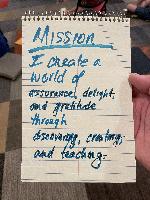 Mission
I create a
world of
assurance, delight,
and gratitude
through
discovering, creating,
and teaching.